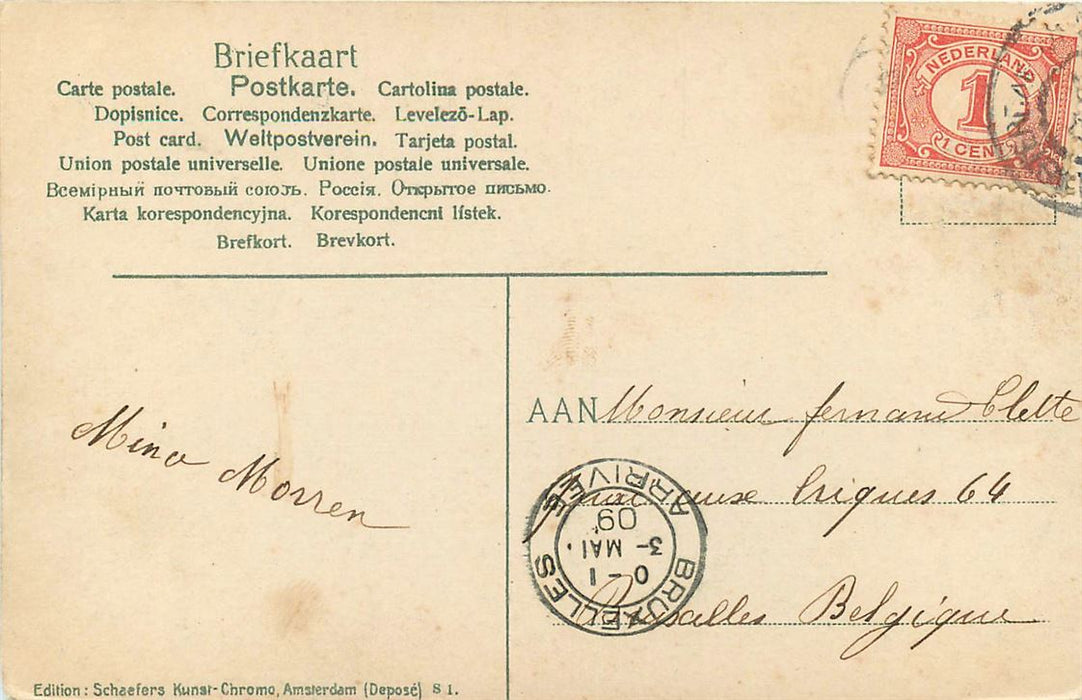 Briefkaart
Carte postale. Postkarte. Cartolina postale.
Dopisnice. Correspondenzkarte. Levelező-Lap.
Post card. Weltpostverein. Tarjeta postal.
Union postale universelle. Unione postale universale.
Всемірный почтовый союзъ. Россія. Открытое письмо.
Karta korespondencyjna. Korespondencní lístek.
Brefkort. Brevkort.
NEDERLAND
1
1 CENT
AAN Monsieur fernand Clette
aux briques 64
Bruxalles Belgique
BRUXELLES
0-1
3- MAI.
09
ARRIVEE
Mina Morren
Edition: Schaefers Kunst-Chromo, Amsterdam (Deposé) S 1.